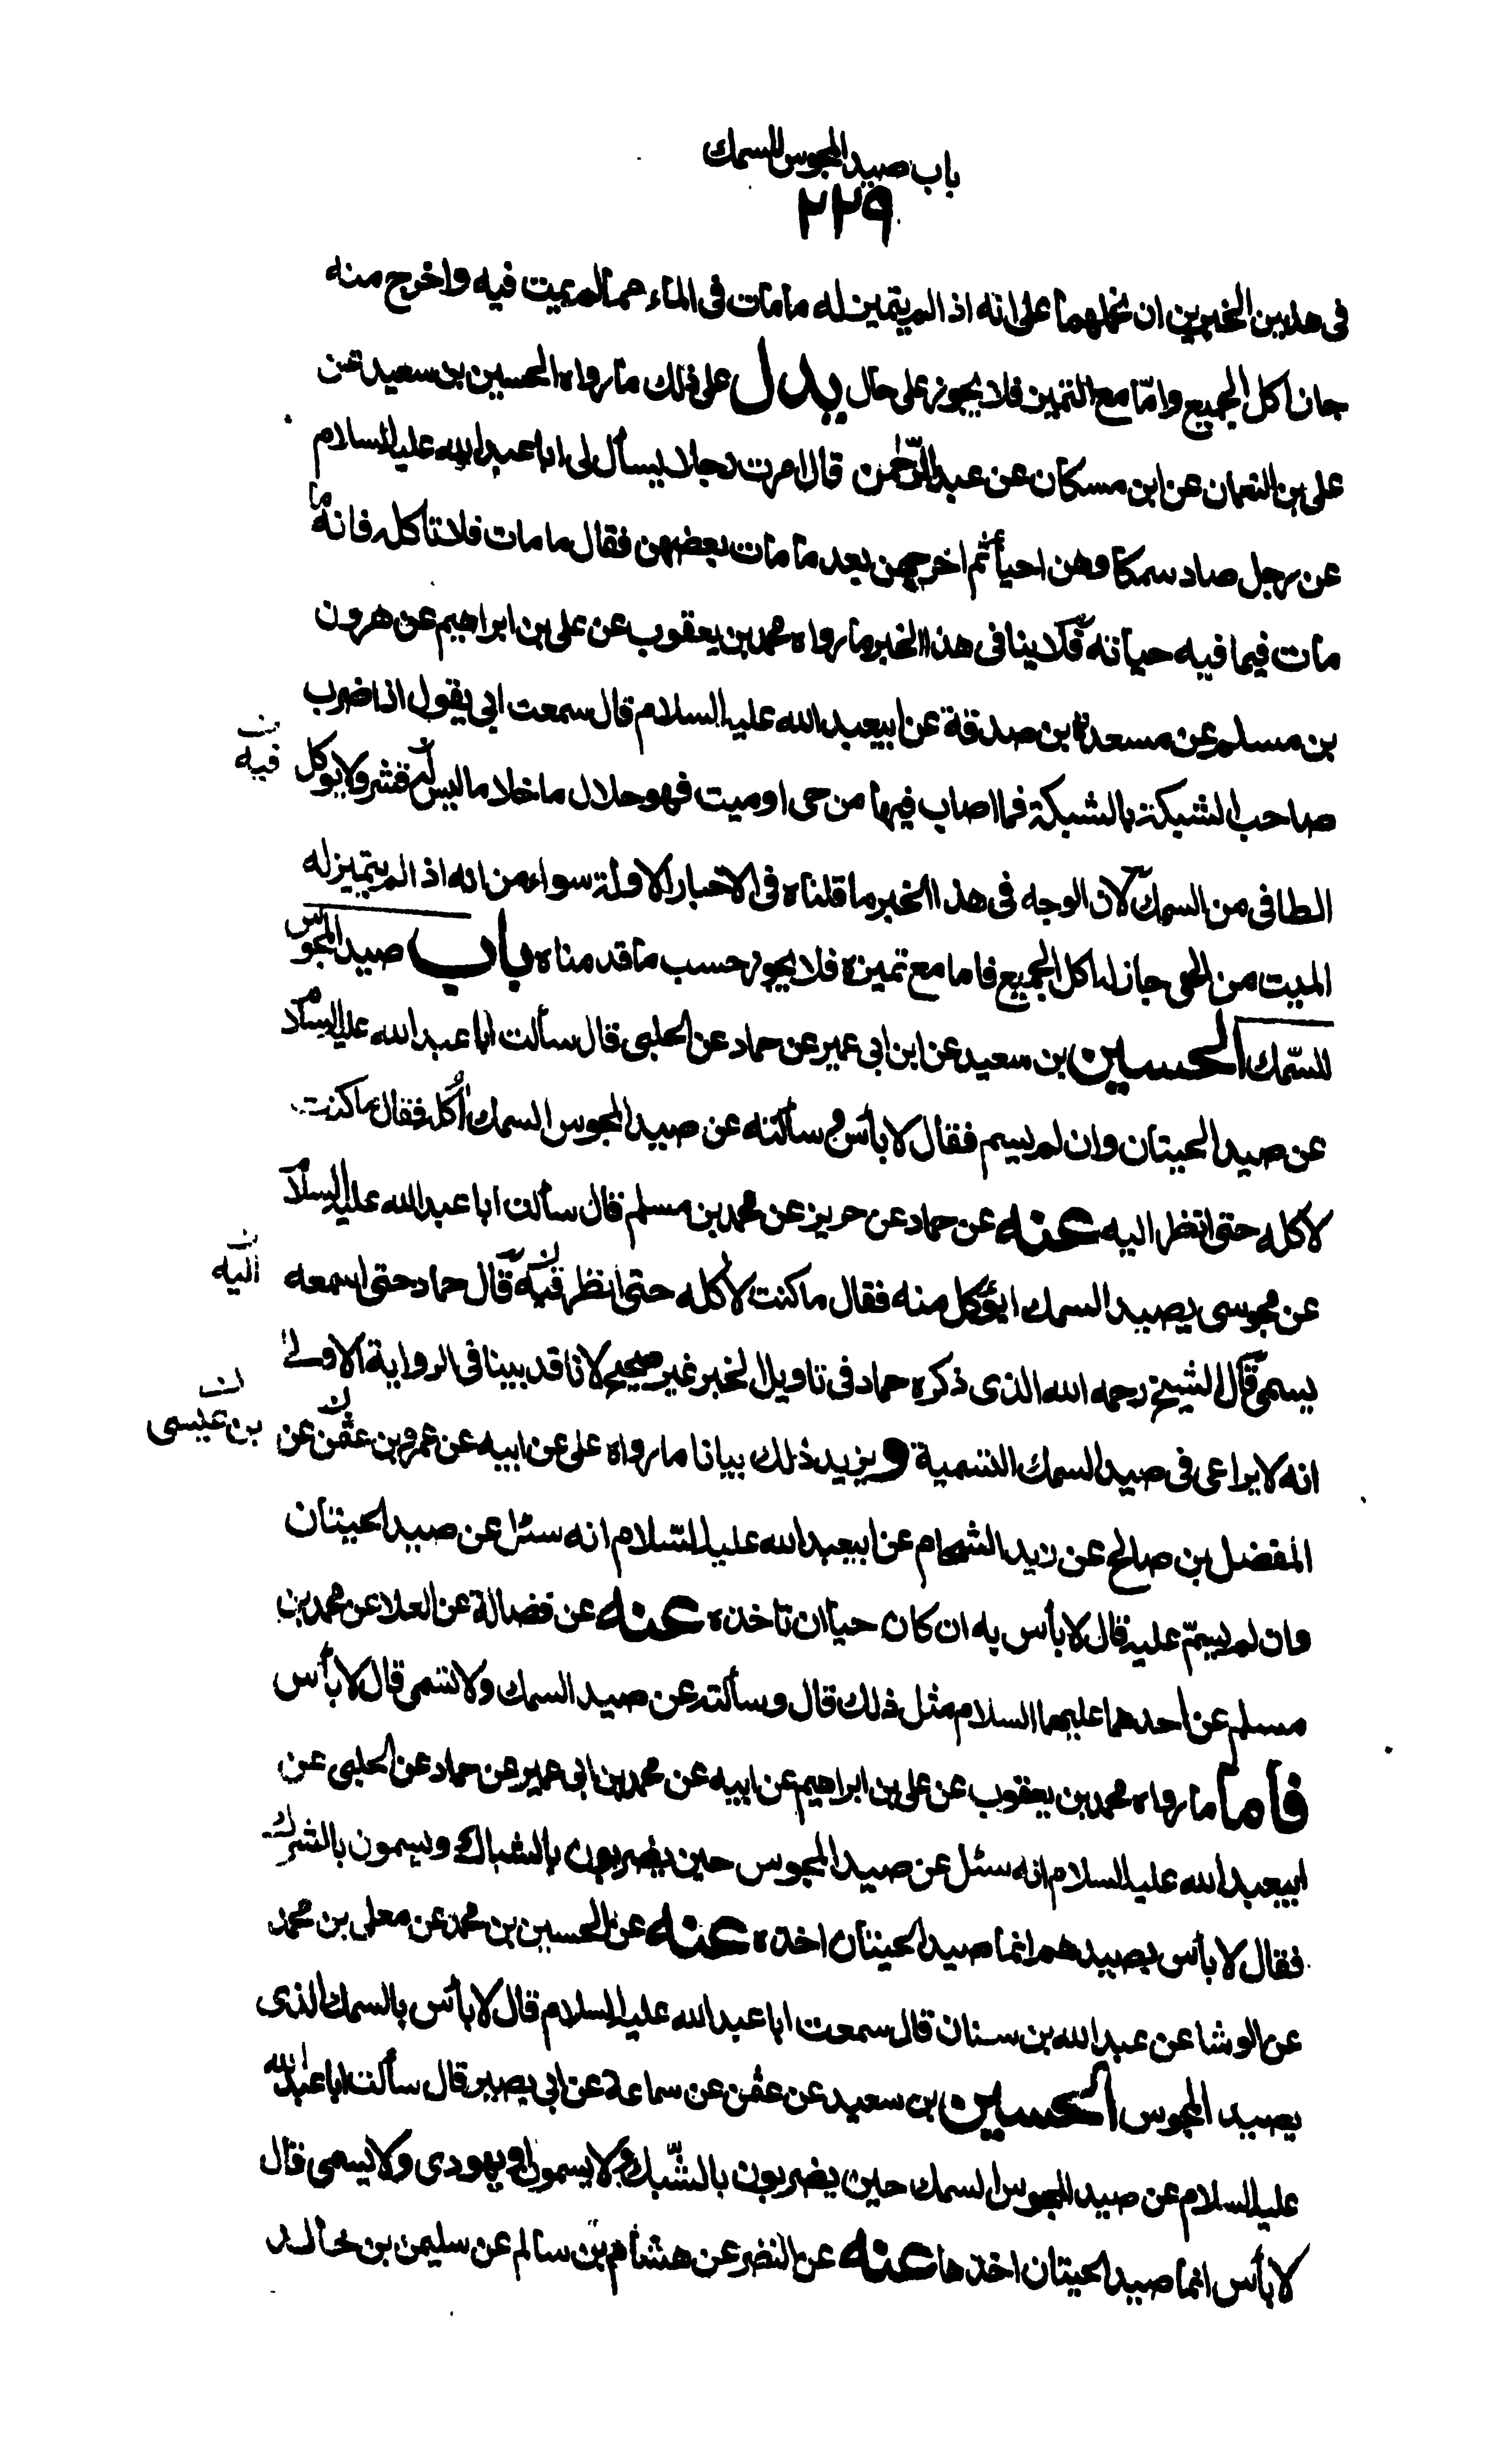 باب صيد المجوس للسمك
٢٢٩
فى هذين الخبرين ان نحملهما على انه اذا لم يتميز له ما مات فى الماء مما لم يمت فيه واخرج منه
جاز اكل الجميع وامّا مع التميز فلا يجوز على حال يدل على ذلك ما رواه الحسين بن سعيد عن
على بن النعمان عن ابن مسكان عن عبد الرّحمن قال امرت رجلا يسأل لى ابا عبد الله عليه السلام
عن رجل صاد سمكا وهن احياء ثم اخرجهن بعد ما مات بعضهن فقال ما مات فلا تاكله فانه
مات فيما فيه حياته فلا ينافى هذا الخبر ما رواه محمد بن يعقوب عن على بن ابراهيم عن هرون
بن مسلم عن مسعدة بن صدقة عن ابيعبد الله عليه السلام قال سمعت ابى يقول اذا ضرب
صاحب الشبكة بالشبكة فما اصاب فيها من حى او ميت فهو حلال ما خلا ما ليس له قشر ولا يوكل
فيه
الطافى من السمك لان الوجه فى هذا الخبر ما قلناه فى الاخبار الاولة سواء من انه اذا لم يتميز له
الميت من الحى جاز له اكل الجميع فاما مع تميزه فلا يجوز حسب ما قدمناه باب صيد المجوس
للسّمك الحسين بن سعيد عن ابن ابى عمير عن حماد عن الحلبى قال سألت ابا عبد الله عليه السلام
عن صيد الحيتان وان لم يسم فقال لا بأس وسألته عن صيد المجوس السمك آكله فقال ما كنت
لاكله حتى انظر اليه عنه عن حماد عن حريز عن محمد بن مسلم قال سألت ابا عبد الله عليه السلام
عن مجوسى يصيد السمك ايؤكل منه فقال ما كنت لاكله حتى انظر فيه قال حماد حتى اسمعه
اليه
يسمى قال الشيخ رحمه الله الذى ذكره حماد فى تاويل الخبر غير صحيح لانا قد بينا فى الرواية الاولى
انه لا يراعى فى صيد السمك التسمية ويزيد ذلك بيانا ما رواه على عن ابيه عن عمرو بن عثمن عن
بن عيسى
المفضل بن صالح عن زيد الشحام عن ابيعبد الله عليه السّلام انه سئل عن صيد الحيتان
وان لم يسمّ عليه قال لا بأس به ان كان حيا ان تاخذه عنه عن فضالة عن العلا عن محمد بن
مسلم عن احدهما عليهما السلام مثل ذلك قال وسألته عن صيد السمك ولا نسمى قال لا بأس
فاما ما رواه محمد بن يعقوب عن على بن ابراهيم عن ابيه عن محمد بن ابى عمير عن حماد عن الحلبى عن
ابيعبد الله عليه السلام انه سئل عن صيد المجوس حين يضربون بالشباك ويسمون بالشرك
فقال لا بأس بصيدهم انما صيد الحيتان اخذه عنه عن الحسين بن محمد عن معلى بن محمد
عن الوشا عن عبد الله بن سنان قال سمعت ابا عبد الله عليه السلام قال لا بأس بالسمك الذى
يصيد المجوس الحسين بن سعيد عن عثمن عن سماعة عن ابى بصير قال سألت ابا عبد الله
عليه السلام عن صيد المجوس السمك حين يضربون بالشّبك ولا يسمون او يهودى ولا يسمى قال
لا بأس انما صيد الحيتان اخذها عنه عن النضر عن هشام بن سالم عن سليمن بن خالد